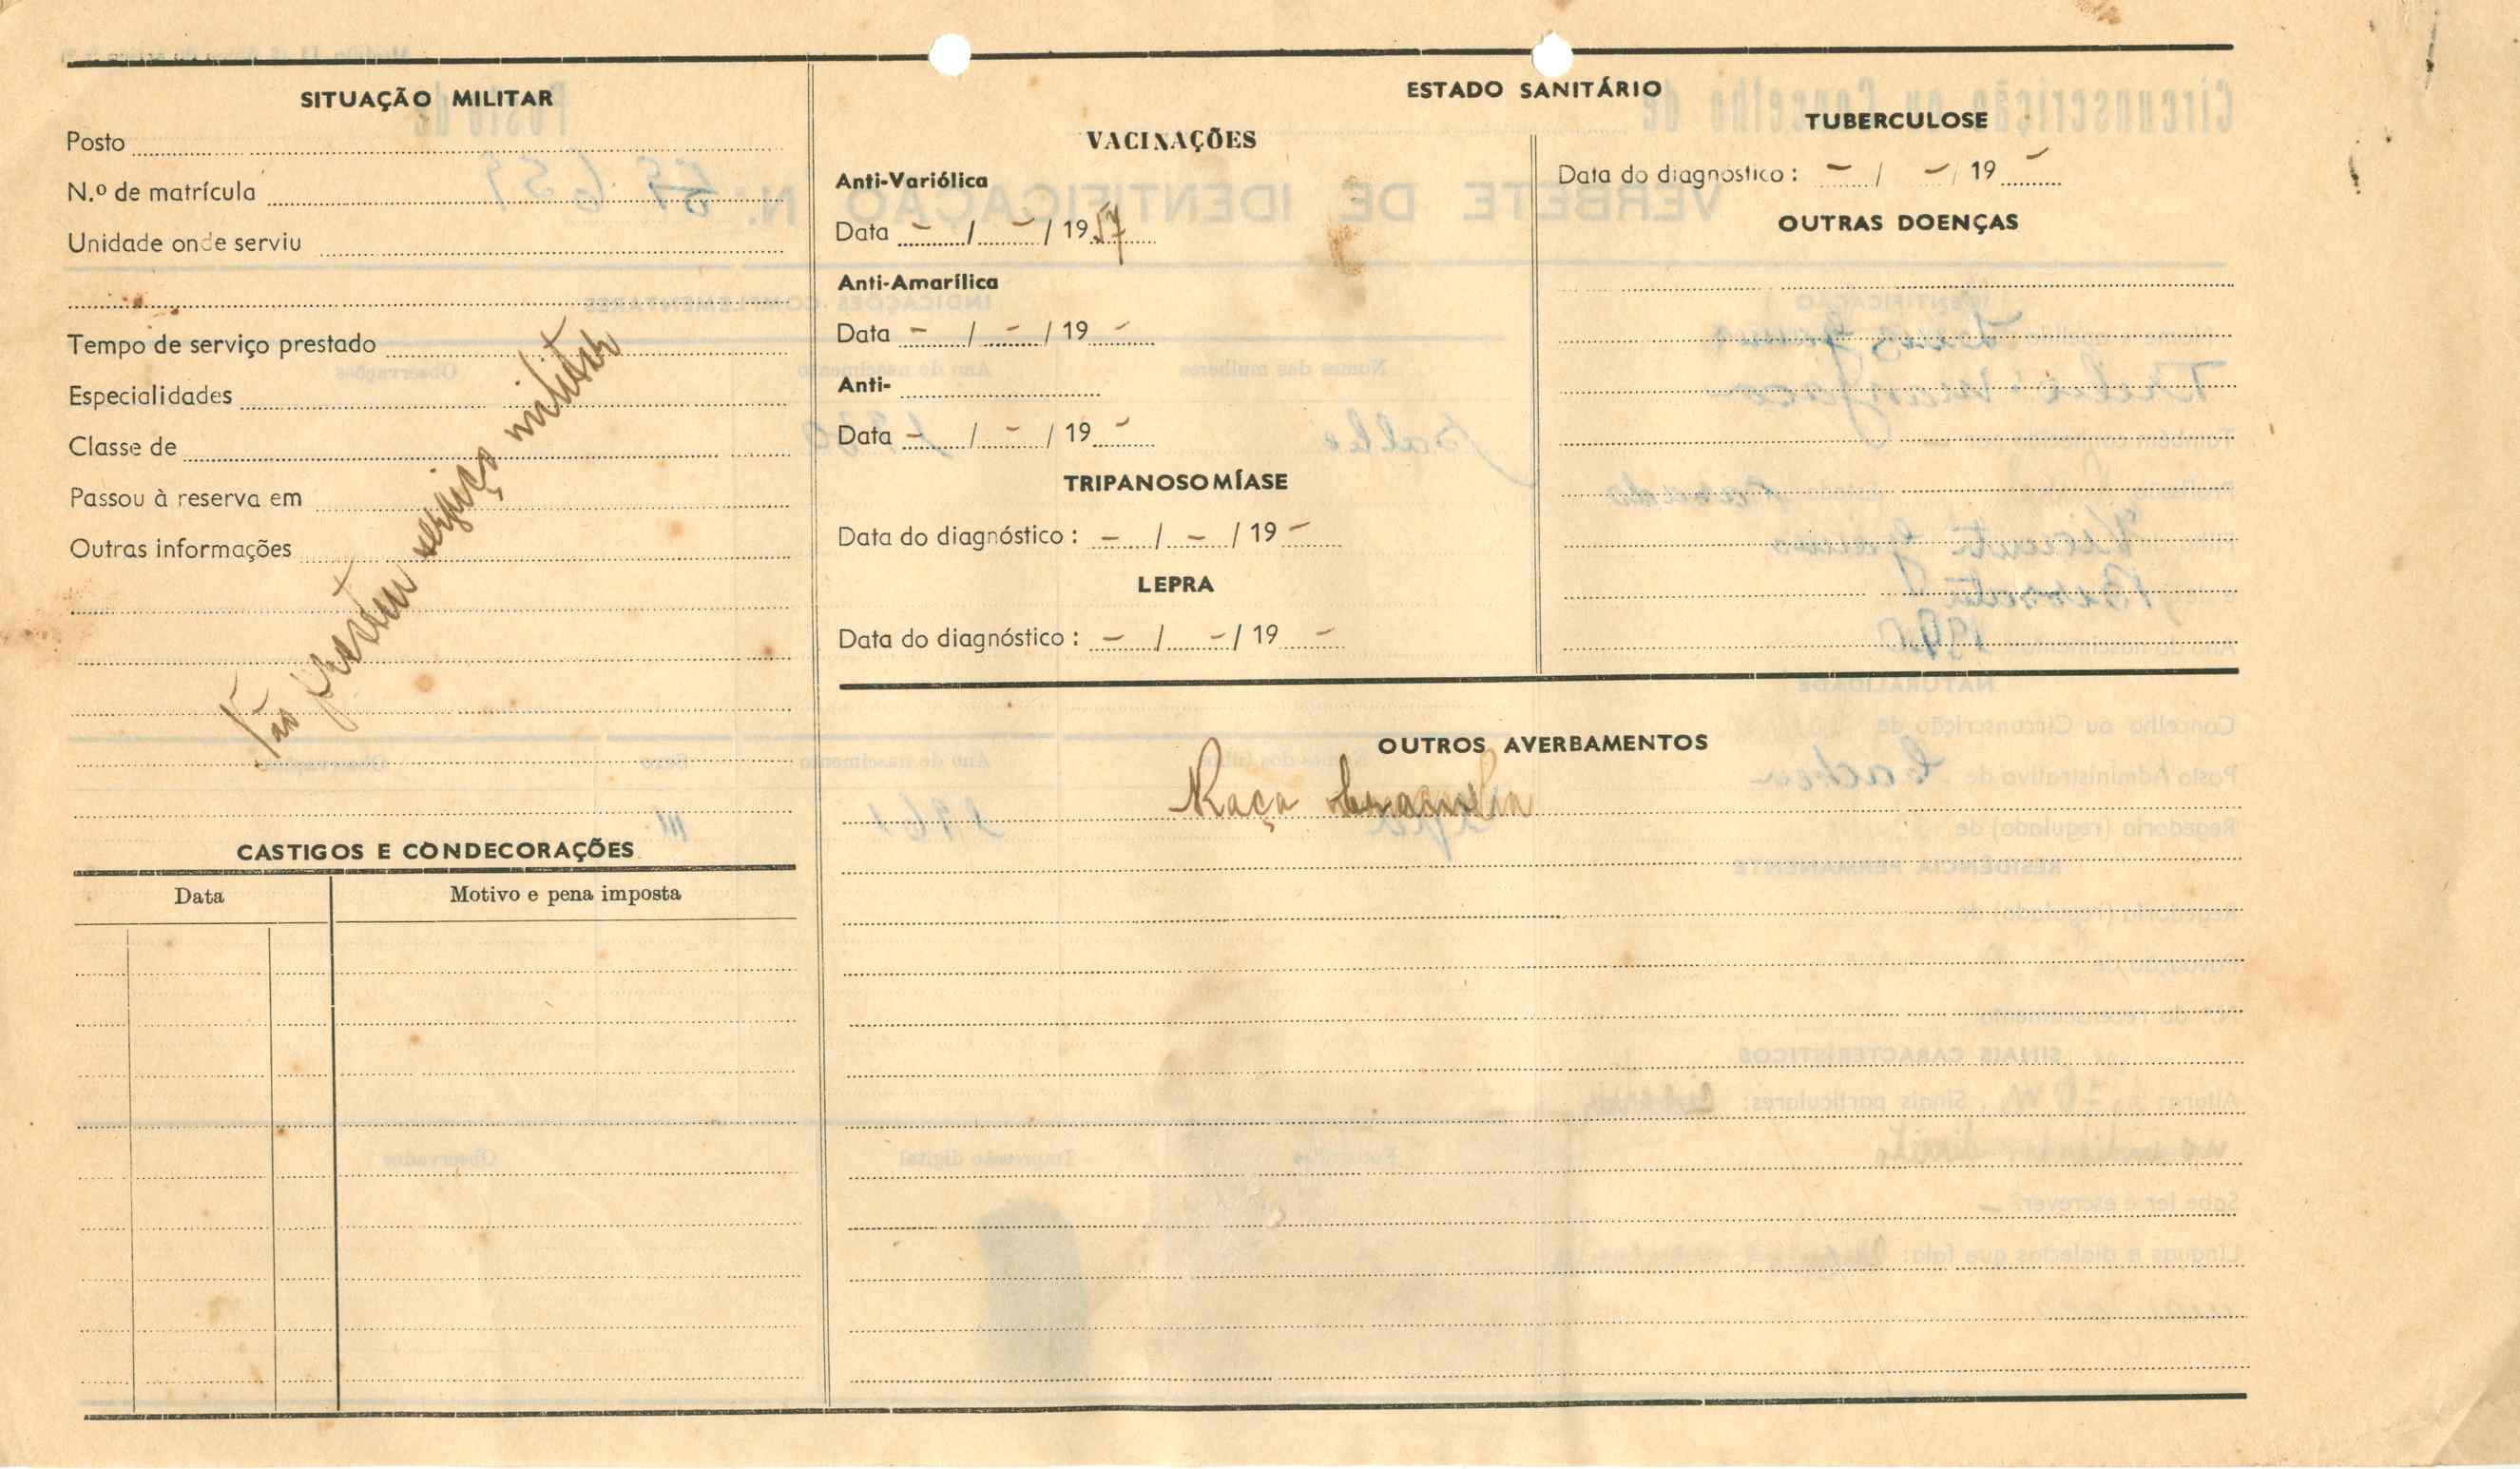 SITUAÇÃO MILITAR
Posto
N.º de matrícula
Unidade onde serviu
Tempo de serviço prestado
Especialidades
Classe de
Passou à reserva em
Outras informações
Não prestou serviço militar
CASTIGOS E CONDECORAÇÕES
Data Motivo e pena imposta
ESTADO SANITÁRIO
VACINAÇÕES
Anti-Variólica
Data - / - / 1957
Anti-Amarílica
Data - / - / 19 -
Anti-
Data - / - / 19 -
TRIPANOSOMÍASE
Data do diagnóstico : - / - / 19 -
LEPRA
Data do diagnóstico : - / - / 19 -
TUBERCULOSE
Data do diagnóstico : - / - / 19 -
OUTRAS DOENÇAS
OUTROS AVERBAMENTOS
Raça